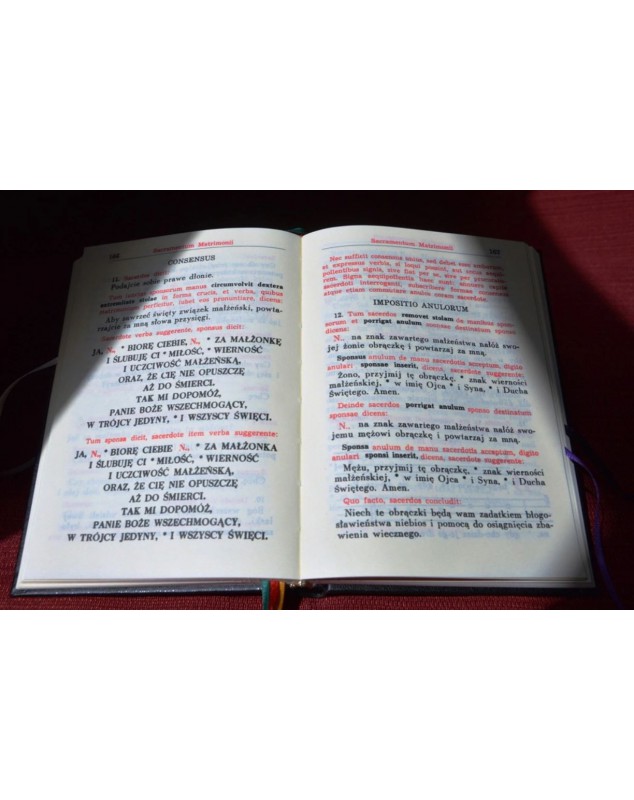 Sacramentum Matrimonii
CONSENSUS
11. Sacerdos
Podajcie sobie prawe dłonie.
Tum iunctas sponsorum manus circumvolvit dextera
extremitate stolae in forma crucis, et verba, quibus
matrimonium perficitur, iubet eos pronuntiare, dicens:
Aby zawrzeć święty związek małżeński, powta-
rzajcie za mną słowa przysięgi.
Sacerdote verba suggerente, sponsus dicit:
JA, N., * BIORĘ CIEBIE, N., * ZA MAŁŻONKĘ
I ŚLUBUJĘ CI * MIŁOŚĆ, * WIERNOŚĆ
I UCZCIWOŚĆ MAŁŻEŃSKĄ,
ORAZ, ŻE CIĘ NIE OPUSZCZĘ
AŻ DO ŚMIERCI.
TAK MI DOPOMÓŻ,
PANIE BOŻE WSZECHMOGĄCY,
W TRÓJCY JEDYNY, * I WSZYSCY ŚWIĘCI.
Tum sponsa dicit, sacerdote item verba suggerente:
JA, N., * BIORĘ CIEBIE N., * ZA MAŁŻONKA
I ŚLUBUJĘ CI * MIŁOŚĆ, * WIERNOŚĆ
I UCZCIWOŚĆ MAŁŻEŃSKĄ,
ORAZ, ŻE CIĘ NIE OPUSZCZĘ
AŻ DO ŚMIERCI.
TAK MI DOPOMÓŻ,
PANIE BOŻE WSZECHMOGĄCY,
W TRÓJCY JEDYNY, * I WSZYSCY ŚWIĘCI.
Sacramentum Matrimonii
Nec sufficit consensus unius, sed debet esse amborum,
et expressus verbis, si loqui possint, aut
signis, sive fiat per se, sive
Signa
sacerdoti interroganti, subscribere formae consensus
atque etiam communicare ambo coram sacerdote.
IMPOSITIO ANULORUM
12. Tum sacerdos removet stolam de manibus spon-
sorum et porrigit anulum sponso destinatum sponsae
dicens:
N., na znak zawartego małżeństwa nałóż swo-
jej żonie obrączkę i powtarzaj za mną.
Sponsus anulum de manu sacerdotis acceptum, digito
anulari sponsae inserit, dicens, sacerdote suggerente:
Żono, przyjmij tę obrączkę, * znak wierności
małżeńskiej, * w imię Ojca * i Syna, * i Ducha
Świętego. Amen.
Deinde sacerdos porrigit anulum sponso destinatum
sponsae dicens:
N., na znak zawartego małżeństwa nałóż swo-
jemu mężowi obrączkę i powtarzaj za mną.
Sponsa anulum de manu sacerdotis acceptum, digito
anulari sponsi inserit, dicens, sacerdote suggerente:
Mężu, przyjmij tę obrączkę, * znak wierności
małżeńskiej, * w imię Ojca * i Syna, * i Ducha
Świętego. Amen.
Quo facto, sacerdos concludit:
Niech te obrączki będą wam zadatkiem błogo-
sławieństwa niebios i pomocą do osiągnięcia zba-
wienia wiecznego.